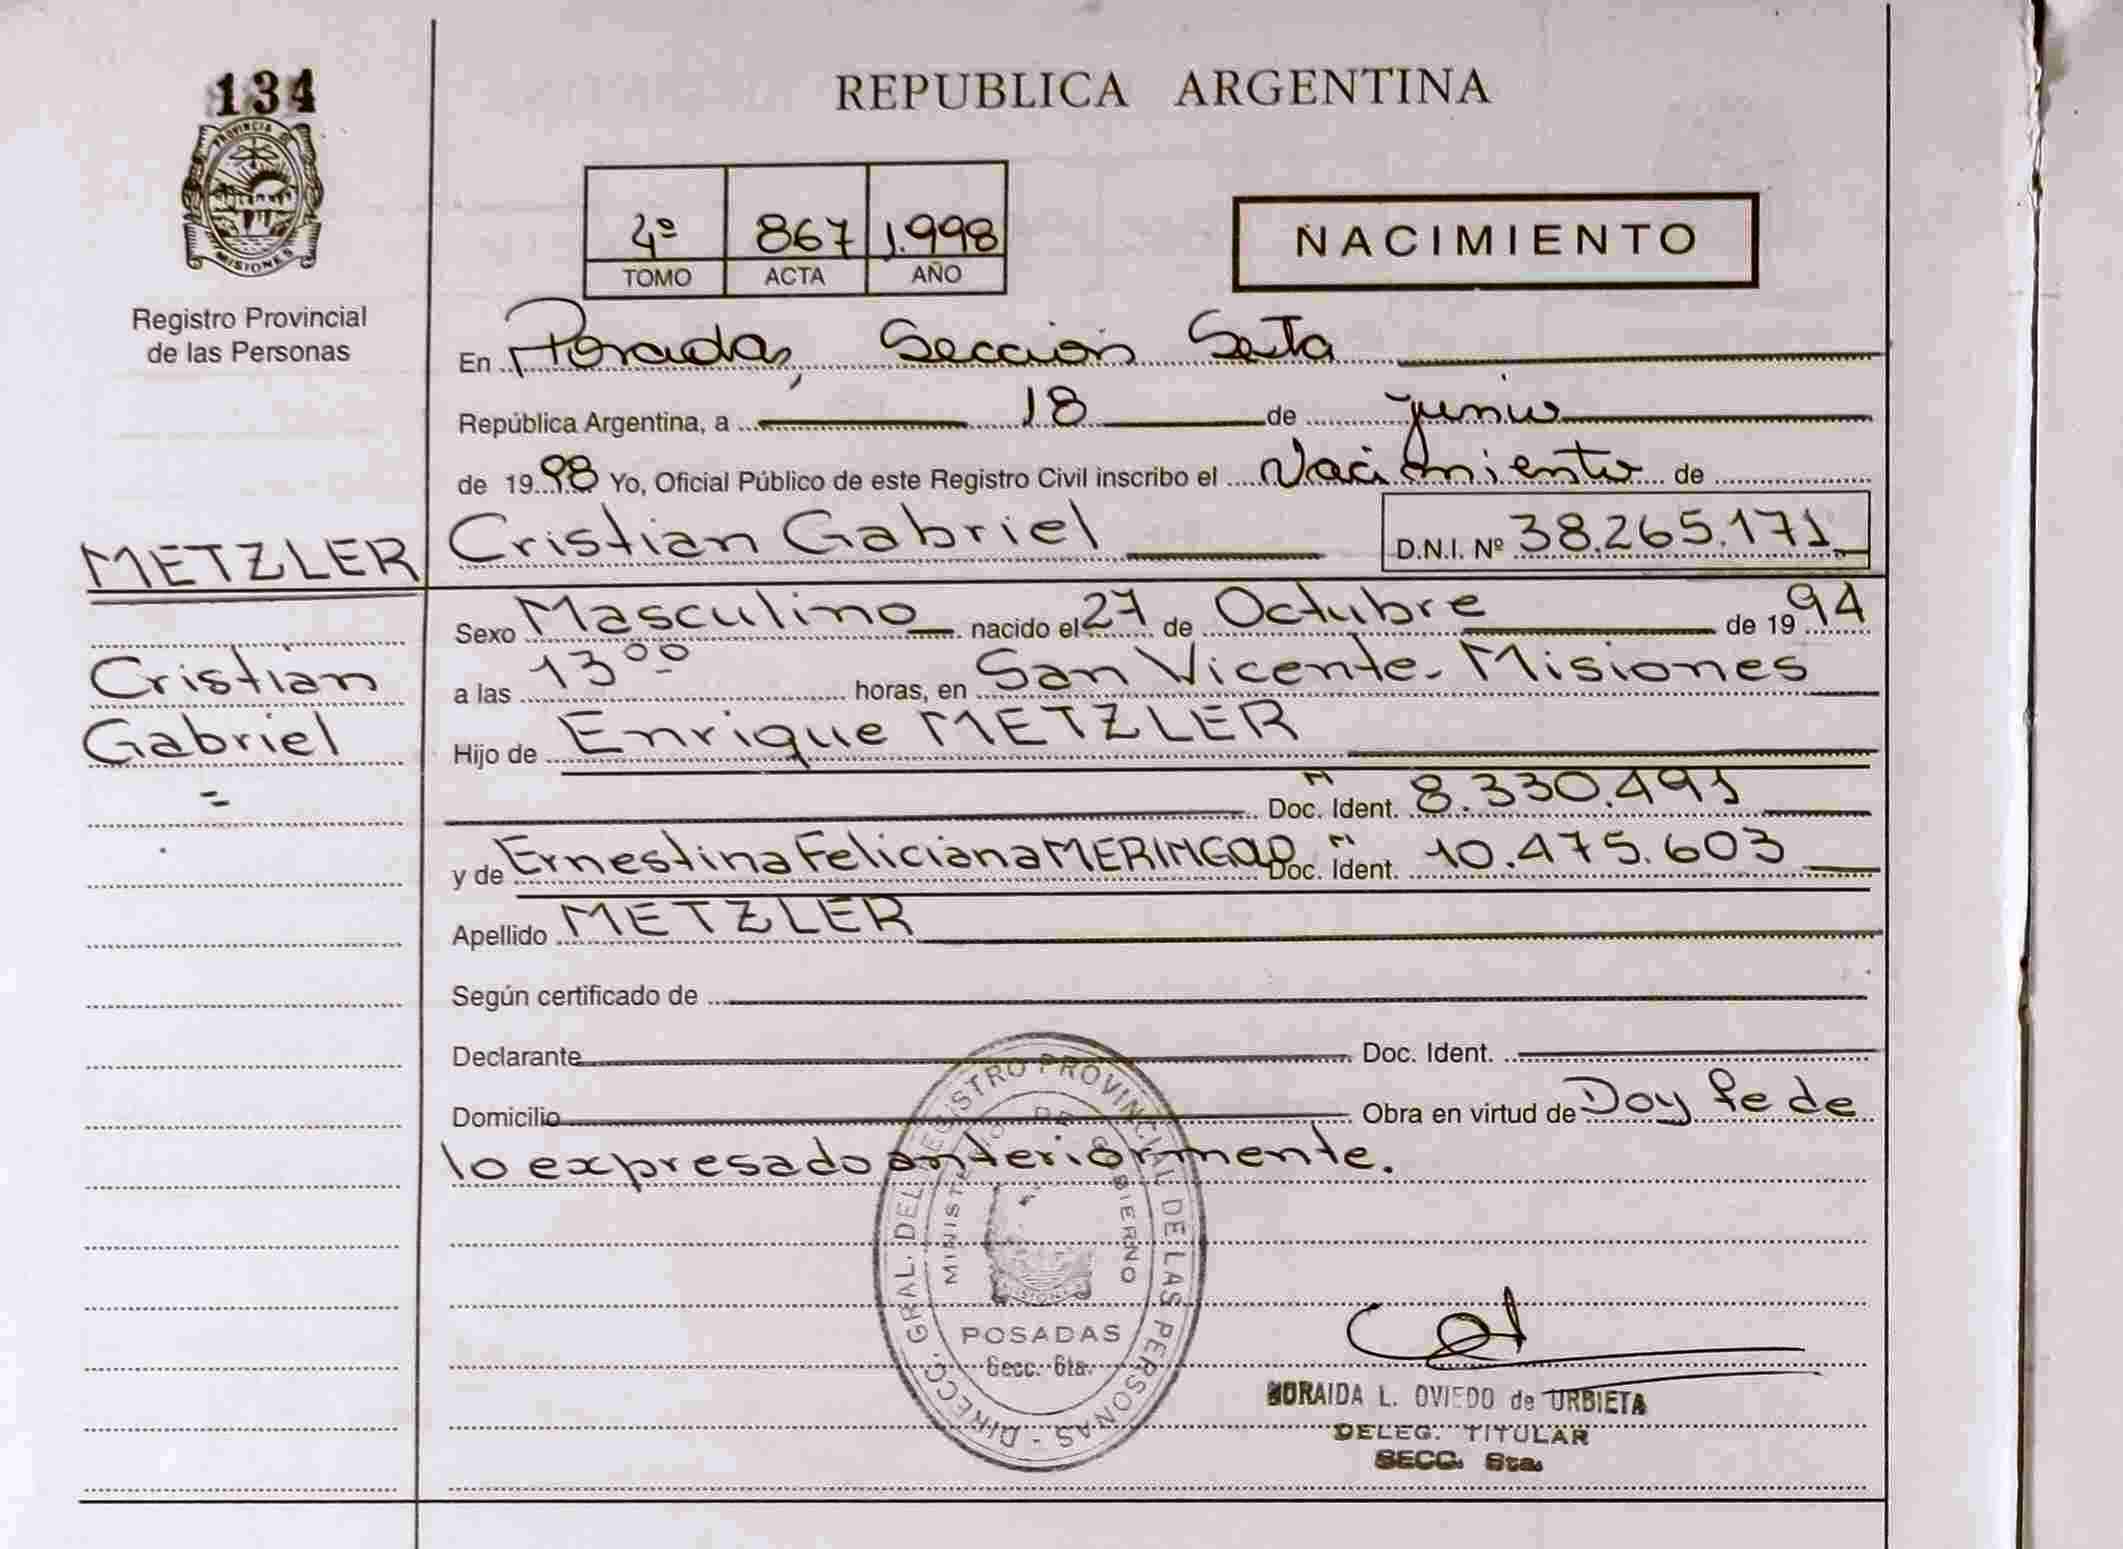 134
PROVINCIA DE
MISIONES
Registro Provincial
de las Personas
REPUBLICA ARGENTINA
4º 867 1.998
TOMO ACTA AÑO
NACIMIENTO
En Posadas, Sección Sexta
República Argentina, a 18 de junio
de 1998 Yo, Oficial Público de este Registro Civil inscribo el Nacimiento de
METZLER
Cristian Gabriel D.N.I. Nº 38.265.171
Sexo Masculino nacido el 27 de Octubre de 1994
Cristian
Gabriel
=
a las 13⁰⁰ horas, en San Vicente - Misiones
Hijo de Enrique METZLER
Doc. Ident. M 8.330.491
y de Ernestina Feliciana Doc. Ident. M 10.475.603
Apellido METZLER
Según certificado de
Declarante Doc. Ident.
Domicilio Obra en virtud de Doy fe de
lo expresado anteriormente.
DIRECC. GRAL. DEL REGISTRO PROVINCIAL DE LAS PERSONAS -
MINISTERIO DE GOBIERNO
POSADAS
Secc. 6ta.
L. OVIEDO de URBIETA
DELEG. TITULAR
SECC. 6ta.